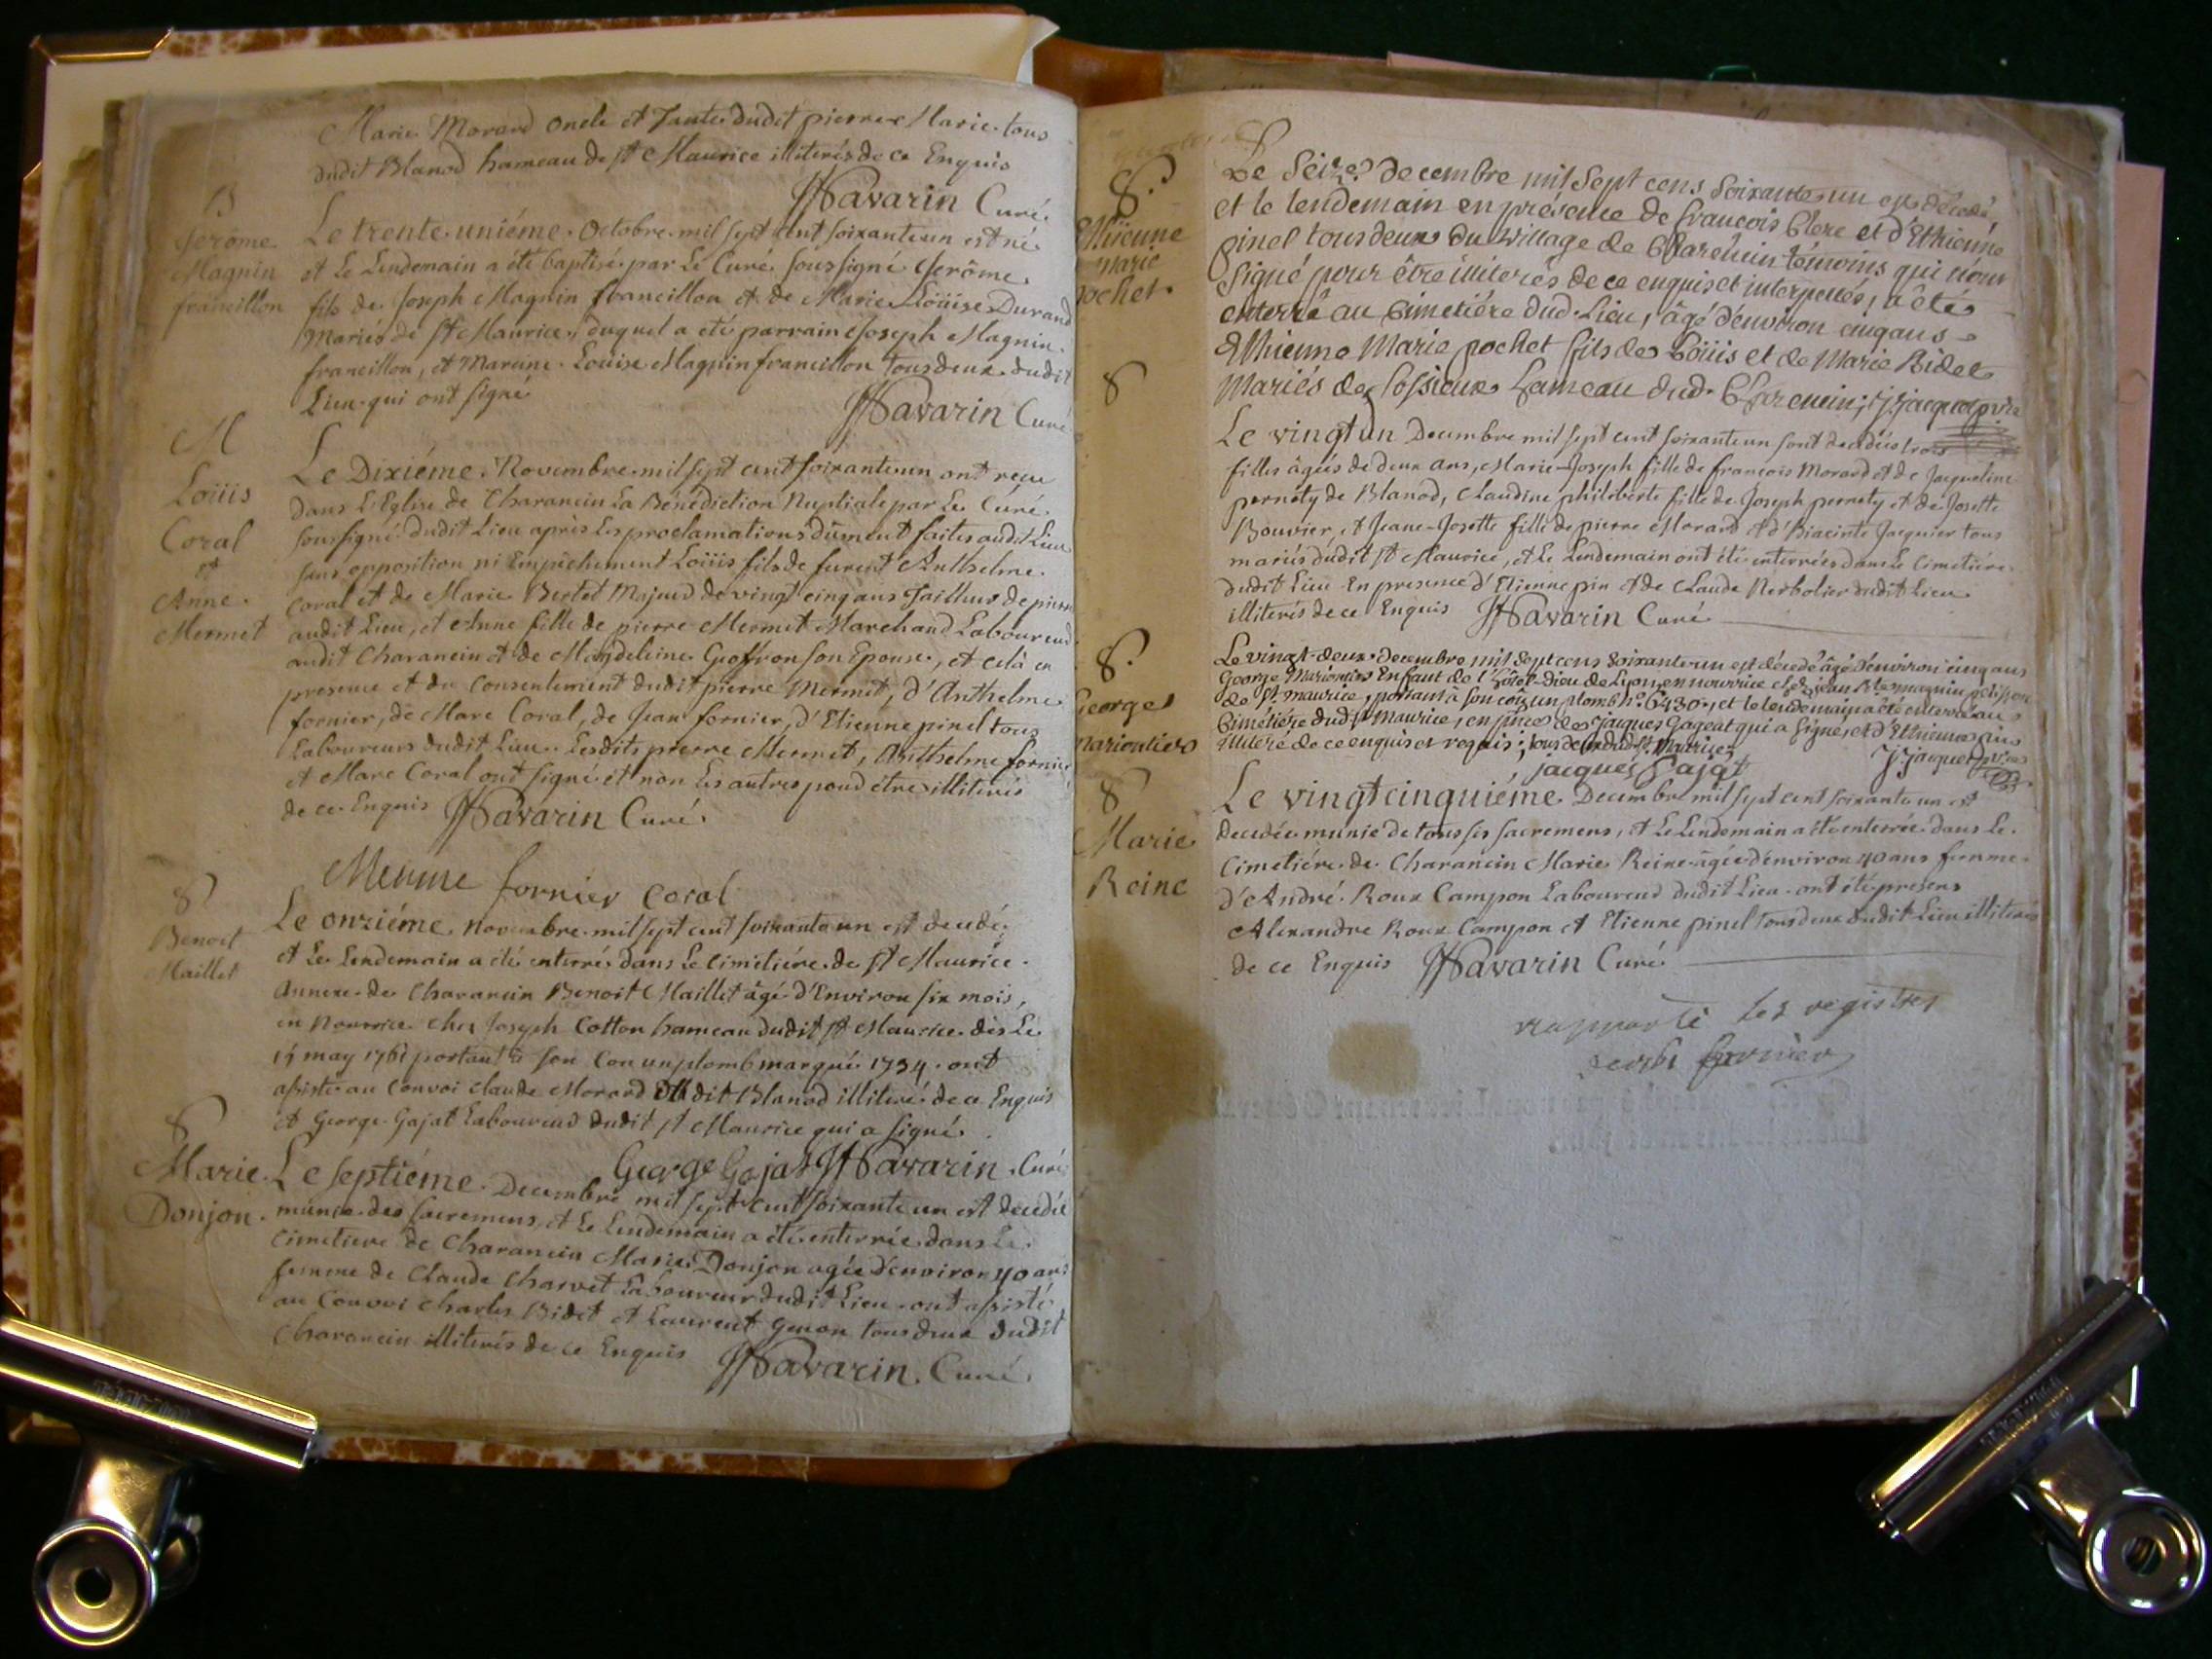 Marie Morard oncle et Tante dudit pierre Marie tous
dudit Blanod hameau de St Maurice illiterés de ce Enquis
JHSavarin Curé.
B
Jerôme
Magnin
francillon
Le trente-uniéme Octobre mil sept cent soixante un est né
et Le Lendemain a été baptisé par Le Curé soussigné Jerôme
fils de Joseph Magnin francillon et de Marie Loüise Durand
Mariés de St Maurice, duquel a eté parrain Joseph Magnin
francillon, et Maraine Louise Magnin francillon tous deux dudit
Lieu qui ont signé
JHSavarin Curé
M
Loüis
Coral
et
Anne
Mermet
Le Dixiéme Novembre mil sept cent soixante un ont reçu
dans L'Eglise de Charancin La Bénédiction Nuptiale par Le Curé
soussigné dudit Lieu après Les proclamations dûment faites audit Lieu
sans opposition ni Empêchement Loüis fils de furent Anthelme
Coral et de Marie Bertet Majeur de vingt cinq ans Tailleur de pierre
audit Lieu, et Anne fille de pierre Mermet Marchand Laboureur
audit Charancin et de Magdeleine Geoffron son Epouse, et cela en
presence et du Consentement dudit pierre Mermet, d'Anthelme
fornier, de Marc Coral, de Jean fornier, d'Etienne pinel tous
Laboureurs dudit Lieu. Lesdits pierre Mermet, Anthelme fornier
et Marc Coral ont signé et non Les autres pour être illiterés
de ce Enquis JHSavarin Curé.
Merme fornier Coral
8
Benoit
Maillet
Le onziéme Novembre mil sept cent soixante un est decedé
et Le Lendemain a été enterré dans Le Cimetiére de St Maurice
Annexe de Charancin Benoit Maillet âgé d'Environ six mois,
en Nourrice chez Joseph Cotton hameau dudit St Maurice dès Le
15 may 1761 portant à son Cou un plomb marqué 1734. ont
assisté au Convoi Claude Morard dudit Blanod illiteré de ce Enquis
et George Gajat Laboureur dudit St Maurice qui a signé
George Gajat JHSavarin Curé
8
Marie
Donjon
Le septiéme Decembre mil sept cent soixante un est decedée
munie des sacremens, et Le Lendemain a été enterrée dans Le
Cimetiere de Charancin Marie Donjon agée d'environ 40 ans
femme de Claude Charvet Laboureur dudit Lieu ont assisté
au Convoi Charles Bidet et Laurent Genon tous deux dudit
Charancin illiterés de ce Enquis JHSavarin Curé
8.
Ethienne
Marie
pochet
Le Seize decembre mil Sept cens Soixante un est décédé,
et le lendemain en présence de francois Clerc et d'Ethienne
pinel tous deux du village de Charencin témoins qui n'ont
Signé pour être illiterés de ce enquis et interpellés, a été
enterré au Cimetiére dud. Lieu, âgé d'environ cinq ans
Ethienne Marie pochet fils de Loüis et de Marie Bidet
Mariés de Sossieux hameau dud. Charencin; J. jacquet p.vre
8
Le vingt un Decembre mil sept cent soixante un sont decedées trois
filles âgées de deux ans, Marie-Joseph fille de francois Morard et de Jacqueline
pernety de Blanod, Claudine philiberte fille de Joseph pernety et de Josette
Bouvier, et Jeane-Josette fille de pierre Morard et d'Hiacinte Jacquier tous
mariés dudit St Maurice, et Le Lendemain ont été enterrées dans Le Cimetiére
dudit Lieu En presence d'Etienne pin et de Claude Nerbolier dudit Lieu
illiterés de ce Enquis JHSavarin Curé
8.
George
marioutiers
Le vingt-deux Decembre mil Sept cens soixante-un est décedé âgé d'environ cinq ans
George Marioutiers Enfant de l'hôtel-dieu de Lyon, en nourrice chez jean Bte magnin petitjean
de St. maurice, portant à son col un plomb n.° 6430, et le lendemain a été enterré au
Cimétiére dud. St Maurice, en pnce de jacques Gageat qui a Signé, et d'Ethienne pin
illiteré de ce enquis et requis; tous deux dud. St. Maurice.
jacques Gajat J. jacquet p.vre
8
Marie
Reine
Le vingt cinquiéme Decembre mil sept cent soixante un est
decedée munie de tous ses sacremens, et Le Lendemain a été enterrée dans Le
Cimetiére de Charancin Marie Reine agée d'environ 40 ans femme
d'André Roux Campon Laboureur dudit Lieu ont été presens
Alexandre Roux Campon et Etienne pinel tous deux dudit Lieu illiterés
de ce Enquis JHSavarin Curé
rapporté les registres